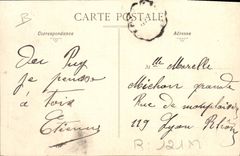 B
CARTE POSTALE
Correspondance
Adresse
Du Puy
je pense
à toi
Etienne
Mlle Marcelle
Michon grande
Rue de
119 Lyon Rhône
B. 121M